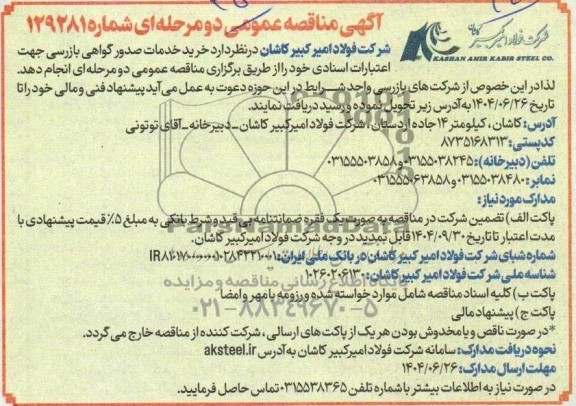 آگهی مناقصه عمومی دو مرحله‌ای شماره ۱۲۹۲۸۱
شرکت فولاد امیر کبیر کاشان
KASHAN AMIR KABIR STEEL CO.
شرکت فولاد امیر کبیر کاشان در نظر دارد خرید خدمات صدور گواهی بازرسی جهت
اعتبارات اسنادی خود را از طریق برگزاری مناقصه عمومی دو مرحله‌ای انجام دهد.
لذا در این خصوص از شرکت‌های بازرسی واجد شــرایط در این حوزه دعوت به عمل می‌آید پیشنهاد فنی و مالی خود را تا
تاریخ ۱۴۰۴/۰۶/۲۶ به آدرس زیر تحویل نموده و رسید دریافت نمایند.
آدرس: کاشان، کیلومتر ۱۴ جاده اردستان، شرکت فولاد امیرکبیر کاشان_دبیرخانه_آقای توتونی
کدپستی: ۸۷۳۵۱۶۸۳۱۳
تلفن (دبیرخانه): ۰۳۱۵۵۰۳۸۲۴۵ و ۰۳۱۵۵۵۰۳۸۵۸
نمابر: ۰۳۱۵۵۰۳۸۴۸۰ و ۰۳۱۵۵۵۰۶۳۸۵۸
مدارک مورد نیاز:
پاکت الف) تضمین شرکت در مناقصه به صورت یک فقره ضمانتنامه بی قید و شرط بانکی به مبلغ ۵٪ قیمت پیشنهادی با
مدت اعتبار تا تاریخ ۱۴۰۴/۰۹/۳۰ قابل تمدید در وجه شرکت فولاد امیرکبیر کاشان.
شماره شبای شرکت فولاد امیر کبیر کاشان در بانک ملی ایران:
شناسه ملی شرکت فولاد امیر کبیر کاشان: ۱۰۲۶۰۲۰۶۱۳۰
پاکت ب) کلیه اسناد مناقصه شامل موارد خواسته شده و رزومه با مهر و امضا
پاکت ج) پیشنهاد مالی
*در صورت ناقص و یا مخدوش بودن هر یک از پاکت‌های ارسالی، شرکت کننده از مناقصه خارج می گردد.
نحوه دریافت مدارک: سامانه شرکت فولاد امیرکبیر کاشان به آدرس aksteel.ir
مهلت ارسال مدارک: ۱۴۰۴/۰۶/۲۶
در صورت نیاز به اطلاعات بیشتر با شماره تلفن ۰۳۱۵۵۳۸۳۶۵ تماس حاصل فرمایید.
ParsNamadData
پایگاه اطلاع رسانی مناقصه و مزایده
۰۲۱-۸۸۳۴۹۶۷۰-۵